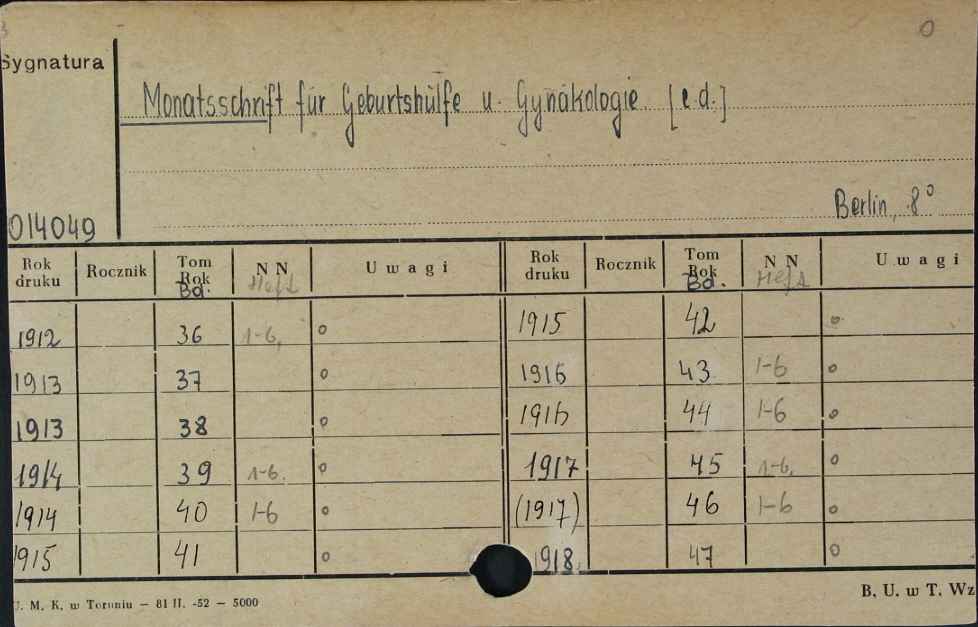 0
Sygnatura
Monatsschrift für Geburtshülfe u. Gynäkologie [e.d.]
Berlin, 8°
014049
Rok druku Rocznik Tom Rok Bd. NN Heft Uwagi Rok druku Rocznik Tom Rok Bd. NN Heft Uwagi
1912 36 1-6, o 1915 42 o
1913 37 o 1916 43 1-6 o
1913 38 o 1916 44 1-6 o
1914 39 1-6. o 1917 45 1-6. o
1914 40 1-6 o (1917) 46 1-6 o
1915 41 o 1918. 47 o
U. M. K. w Toruniu — 81 II. -52 — 5000 B. U. w T. Wz